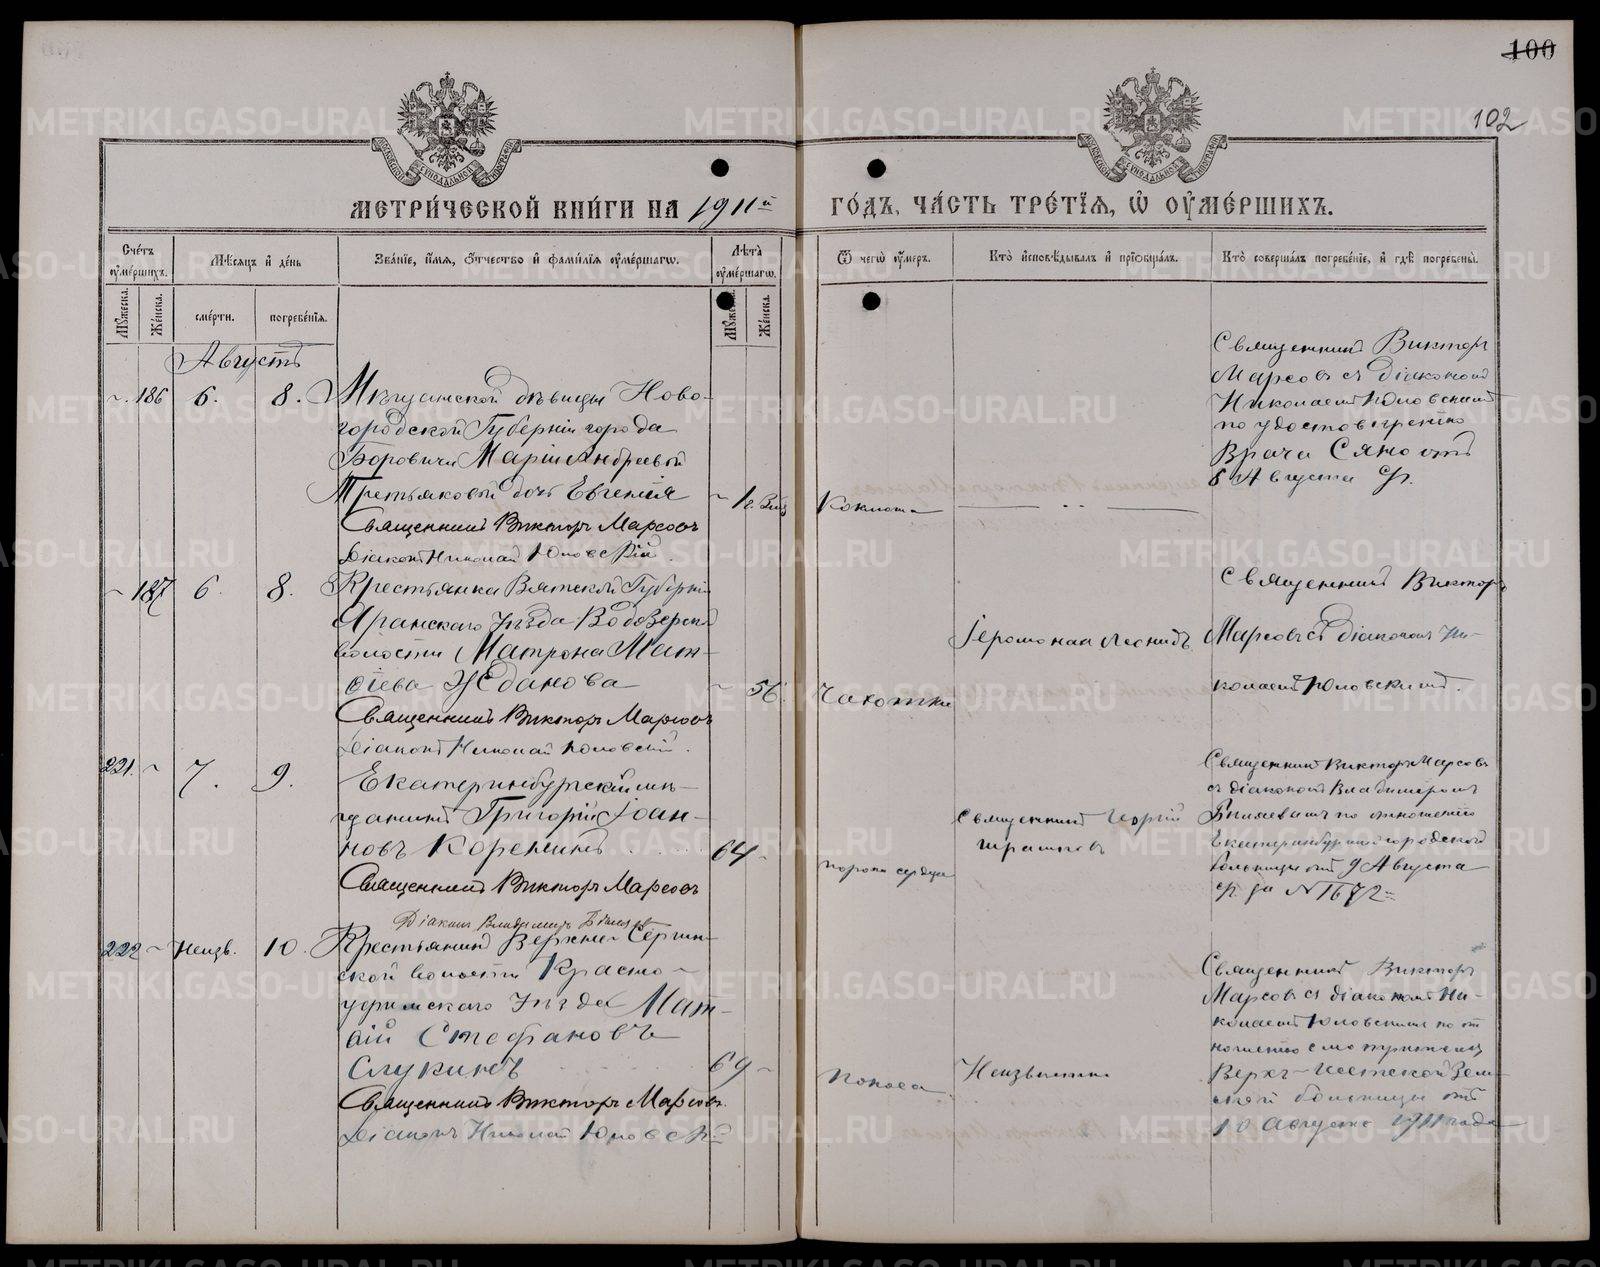 100
102
МЕТРИ́ЧЕСКОЙ КНИ́ГИ НА 1911й ГО́ДЪ, ЧА́СТЬ ТРЕ́ТЇѦ, Ѡ ОУМЕ́РШИХЪ.
Сче́тъ оуме́ршихъ.
Мѣ́сѧцъ и҆ де́нь
Зва́нїе, и҆́мѧ, ѻ҆́тчество и҆ фамѝлїѧ оуме́ршагѡ.
Лѣ́та оуме́ршагѡ.
Ѿ чегѡ̀ оу́меръ.
Кто̀ и҆сповѣ́дывалъ и҆ прїѡбща́лъ.
Кто̀ соверша́лъ погребе́нїе, и҆ гдѣ̀ погребены̀.
Мꙋ́жеска.
Же́нска.
сме́рти.
погребе́нїѧ.
Мꙋ́жеска.
Же́нска.
Августъ
186
6.
8.
Мѣщанской дѣвицы Ново-
городской Губерніи города
Боровичи Маріи Андреевой
Третьяковой дочь Евгенія
Священникъ Викторъ Марсовъ
Діаконъ Николай Юловскій
1г.
Коклюша
Священникъ Викторъ
Марсовъ съ діакономъ
Николаемъ Юловскимъ
по удостовѣренію
Врача Сяно отъ
8 Августа
187
6.
8.
Крестьянка Вятской Губерніи
Яранскаго Уѣзда
волости Матрона Мат-
ѳіева Жданова
Священникъ Викторъ Марсовъ
Діаконъ Николай Юловскій.
56.
Чахотки
Іеромонах Леонидъ
Священникъ Викторъ
Марсовъ съ діакономъ Ни-
колаемъ Юловскимъ.
221.
7.
9.
Екатеринбургскій мѣ-
щанинъ Григорій Іоан-
новъ Корепинъ
Священникъ Викторъ Марсовъ
Діаконъ Владиміръ Бѣляевъ
64
порока сердца
Священникъ Георгій
Священникъ Викторъ Марсовъ
съ діакономъ Владиміромъ
Бѣляевымъ по отношенію
Екатеринбургской городской
больницы отъ 9 Августа
за № 1672
222
Неизв.
10.
Крестьянинъ Верхне-Сергин-
ской волости Красно-
уфимскаго Уѣзда Мат-
ѳій Стефановъ
Слукинъ
Священникъ Викторъ Марсовъ.
Діаконъ Николай Юловскій
69
Поноса
Неизвѣстно
Священникъ Викторъ
Марсовъ съ діакономъ Ни-
колаемъ Юловскимъ по от-
ношенію смотрителя
Верхъ-Исетской Зем-
ской больницы отъ
10 Августа 1911 года
METRIKI.GASO-URAL.RU